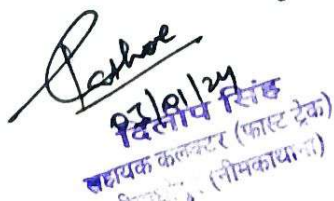 Rathore
03/01/24
दिलीप सिंह
सहायक कलक्टर (फास्ट ट्रेक)
(नीमकाथाना)